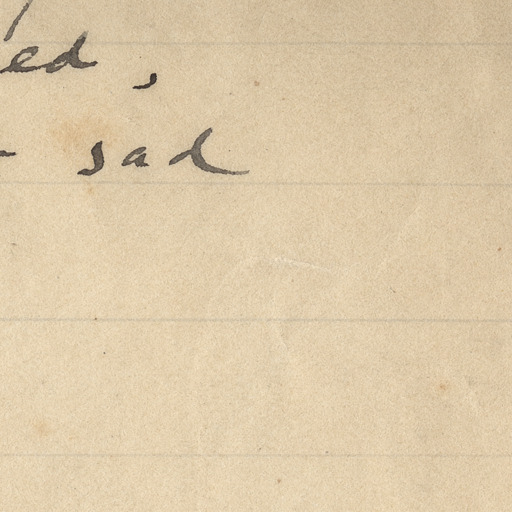 ed,
sad